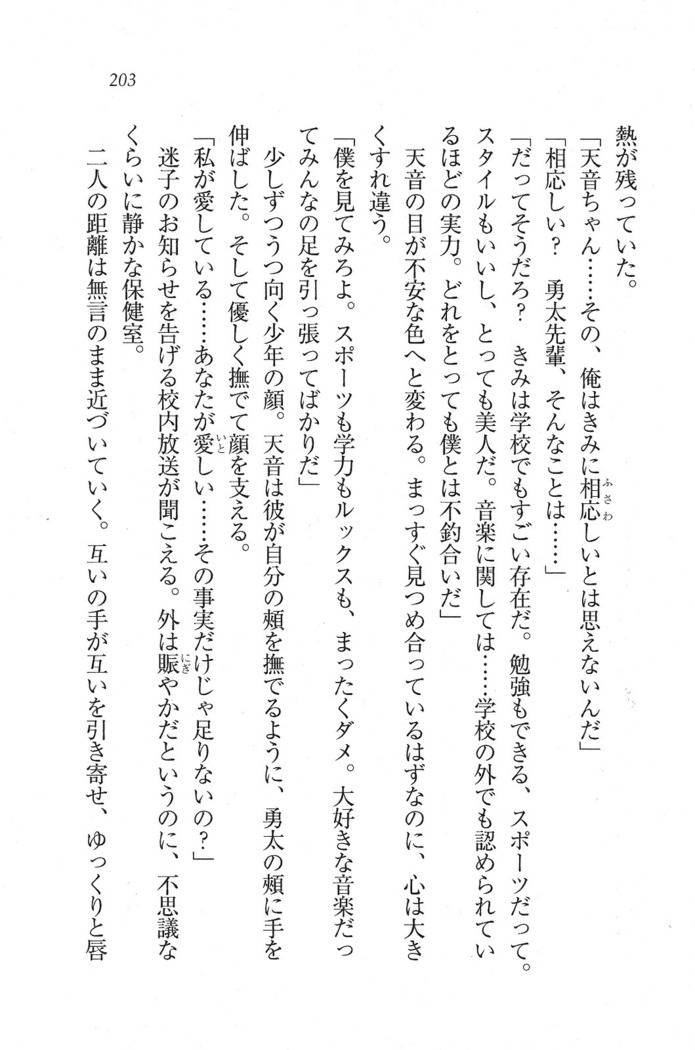 203
熱が残っていた。
「天音ちゃん……その、俺はきみに相応しいとは思えないんだ」
「相応しい？　勇太先輩、そんなことは……」
「だってそうだろ？　きみは学校でもすごい存在だ。勉強もできる、スポーツだって。
スタイルもいいし、とっても美人だ。音楽に関しては……学校の外でも認められてい
るほどの実力。どれをとっても僕とは不釣合いだ」
　天音の目が不安な色へと変わる。まっすぐ見つめ合っているはずなのに、心は大き
くすれ違う。
「僕を見てみろよ。スポーツも学力もルックスも、まったくダメ。大好きな音楽だっ
てみんなの足を引っ張ってばかりだ」
　少しずつうつ向く少年の顔。天音は彼が自分の頰を撫でるように、勇太の頰に手を
伸ばした。そして優しく撫でて顔を支える。
「私が愛している……あなたが愛しい……その事実だけじゃ足りないの？」
　迷子のお知らせを告げる校内放送が聞こえる。外は賑やかだというのに、不思議な
くらいに静かな保健室。
　二人の距離は無言のまま近づいていく。互いの手が互いを引き寄せ、ゆっくりと唇
ふさわ
いと
にぎ